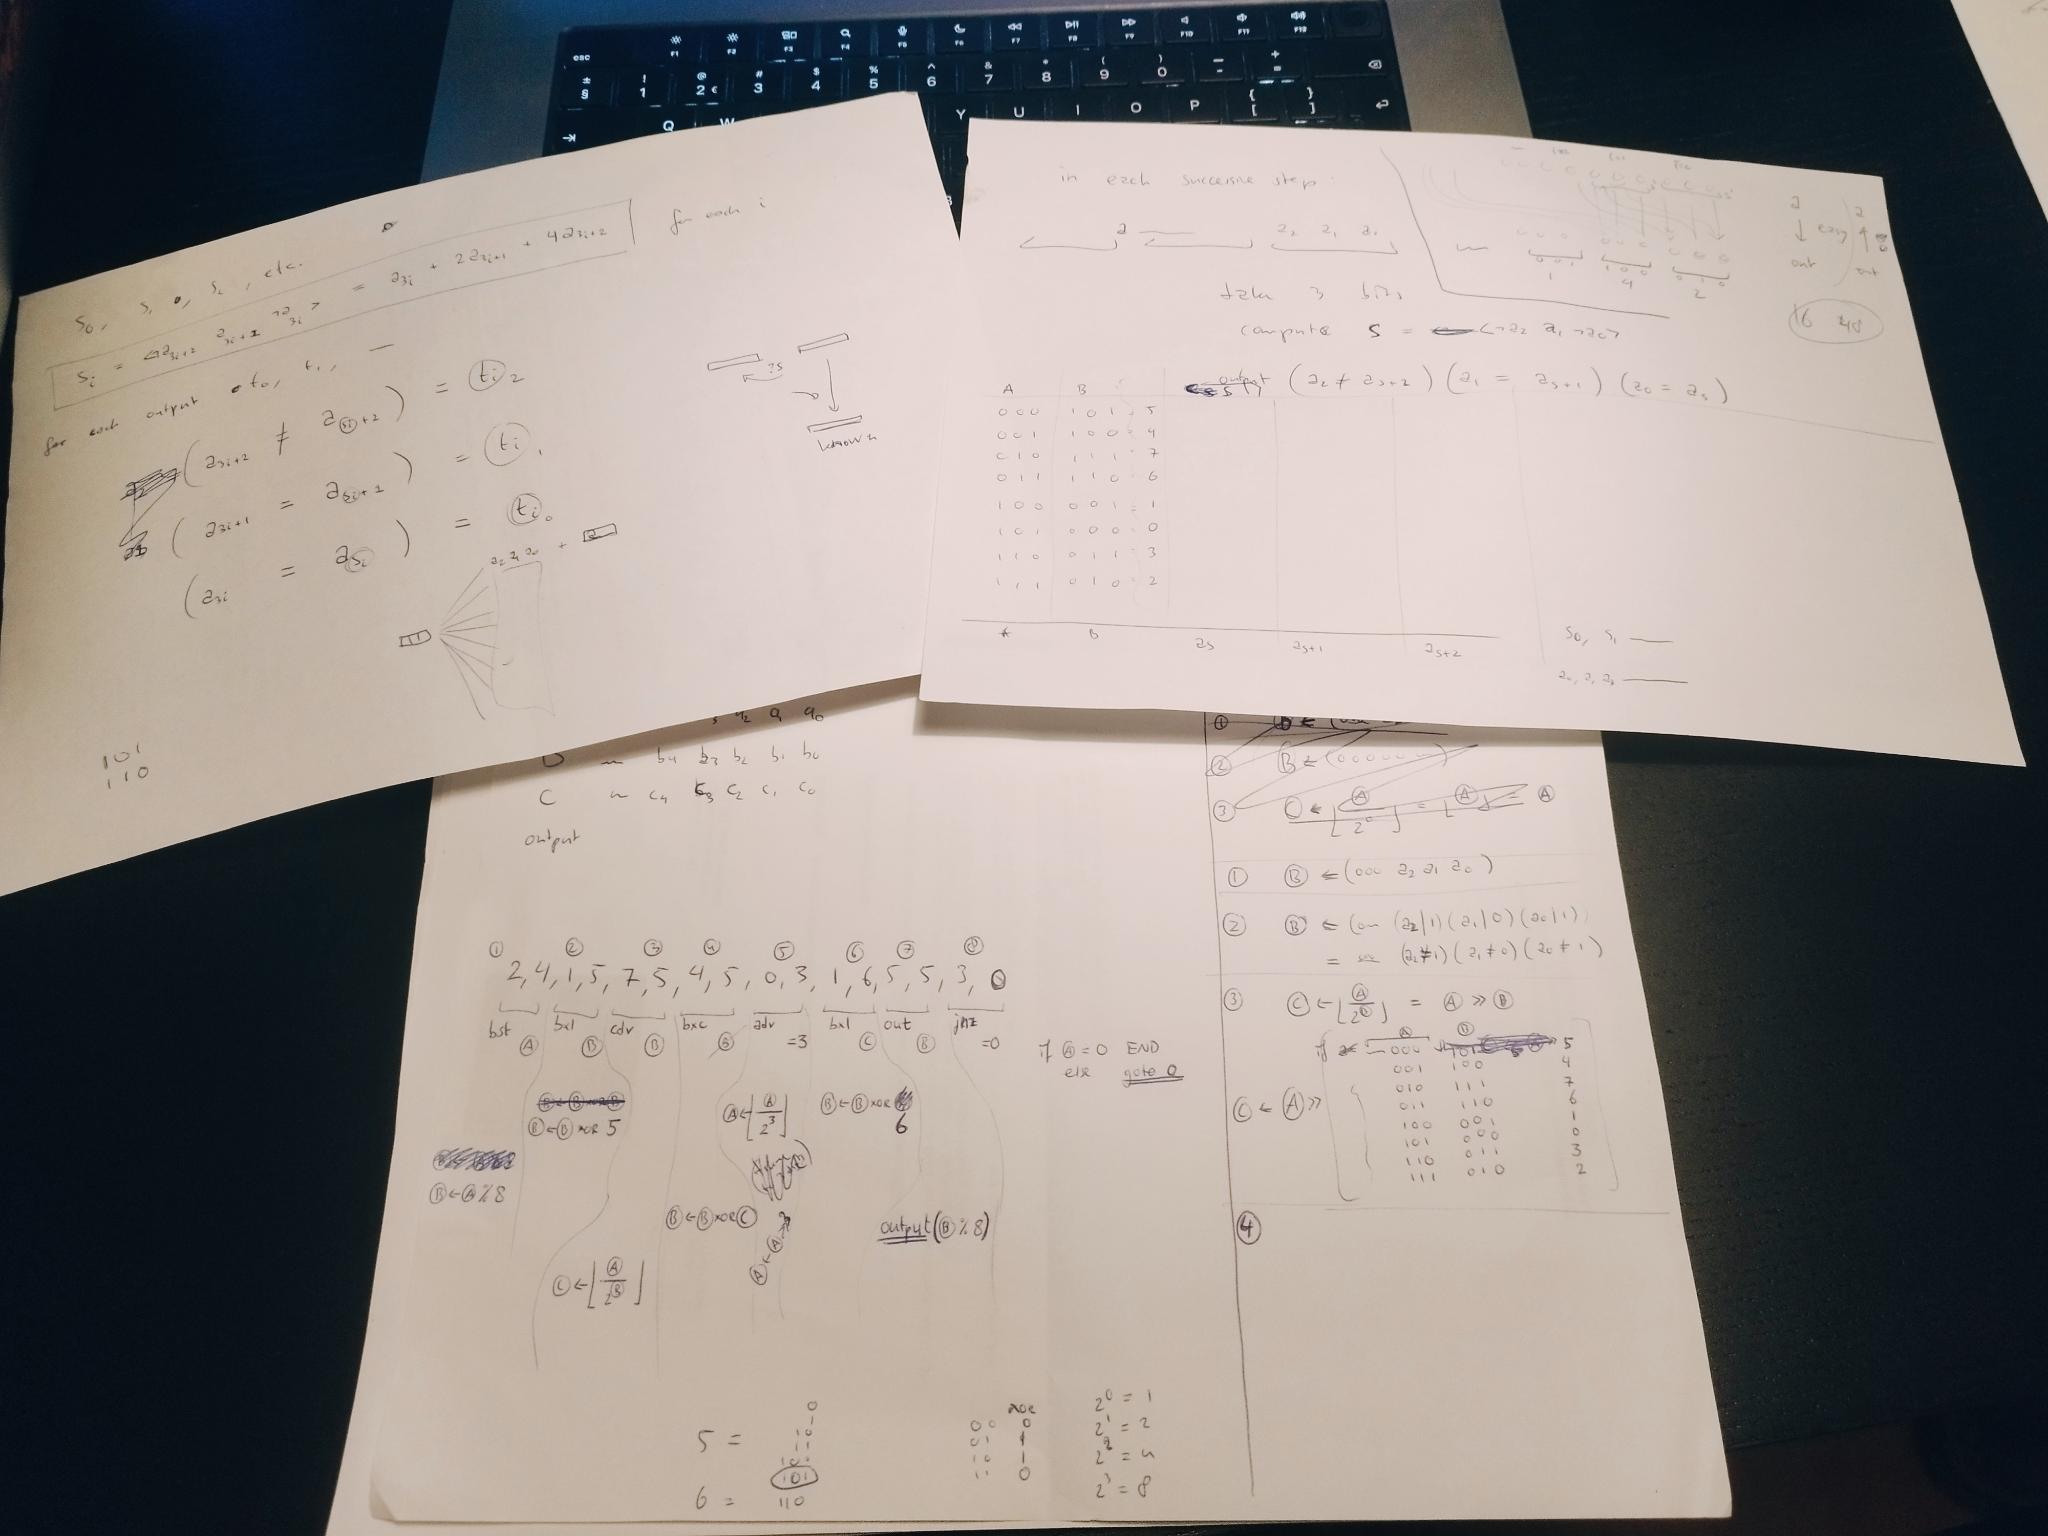 esc F1 F2 F3 F4 F5 F6 F7 F8 F9 F10 F11 F12
± § ! 1 @ 2 € # 3 $ 4 % 5 ^ 6 & 7 * 8 ( 9 ) 0 _ - + =
Q W Y U I O P { [ } ]
S0, S1, S2, etc.
Si = <¬a3i+2 a3i+1 ¬a3i> = a3i + 2a3i+1 + 4a3i+2 for each i
for each output t0, t1, —
(a3i+2 ≠ aSi+2) = ti2
(a3i+1 = aSi+1) = ti1
(a3i = aSi) = ti0
a2 a1 a0 +
?s
known
101
110
in each successive step:
a
a2 a1 a0
take 3 bits
compute S = <¬a2 a1 ¬a0>
output (a2 ≠ as+2) (a1 = as+1) (a0 = as)
A B
000 101 5
001 100 4
010 111 7
011 110 6
100 001 1
101 000 0
110 011 3
111 010 2
A B as as+1 as+2
S0, S1 —
a0, a1, a2 —
0 0 1 1 0 0 0 1 0
1 4 2
a ↓ out easy
a out
16 48
a2 a1 a0
b4 b3 b2 b1 b0
C c4 c3 c2 c1 c0
output
① ② ③ ④ ⑤ ⑥ ⑦ ⑧
2,4,1,5,7,5,4,5,0,3,1,6,5,5,3,0
bst bxl cdv bxc adv bxl out jnz
A B B =3 C B =0
if A = 0 END
else goto 0
B ← B xor B
B ← B xor 5
A ← ⌊A/2³⌋
B ← B xor 6
B ← A % 8
B ← B xor C
output (B % 8)
C ← ⌊A/2^B⌋
5 = 101
6 = 110
xor
00 0
01 1
10 1
11 0
2⁰ = 1
2¹ = 2
2² = 4
2³ = 8
①
② B ← (00000
③ C ← ⌊A/2⁰⌋ = ⌊A⌋ = A
① B ← (000 a2 a1 a0)
② B ← (a2|1) (a1|0) (a0|1)
= (a2≠1) (a1≠0) (a0≠1)
③ C ← ⌊A/2^B⌋ = A >> B
A B
if 000 101 5
001 100 4
010 111 7
011 110 6
C ← A >>
100 001 1
101 000 0
110 011 3
111 010 2
④